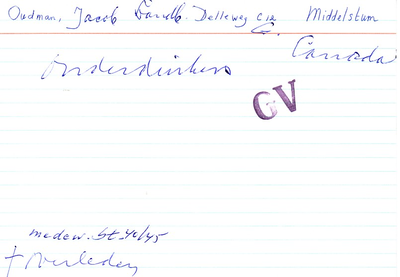 Oudman, Jacob Delleweg C12 Middelstum
Canada
onderduikers
GV
medew. St. 40/45
† overleden